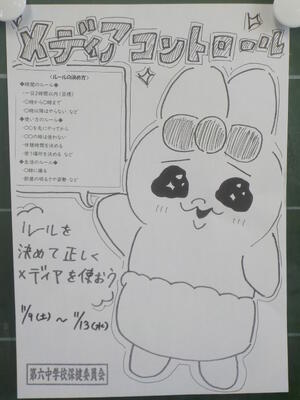 メディアコントロール
〈ルールの決め方〉
◆時間のルール◆
・一日2時間以内(目標)
・○時から○時まで
・○時以降はやらない など
◆使い方のルール◆
・○○を先にやってから
・○○の時は使わない
・休憩時間を決める
・使う場所を決める など
◆生活のルール◆
・○時に寝る
・部屋の明るさや姿勢 など
ルールを
決めて正しく
メディアを使おう
11/9(土)～11/13(水)
第六中学校保健委員会